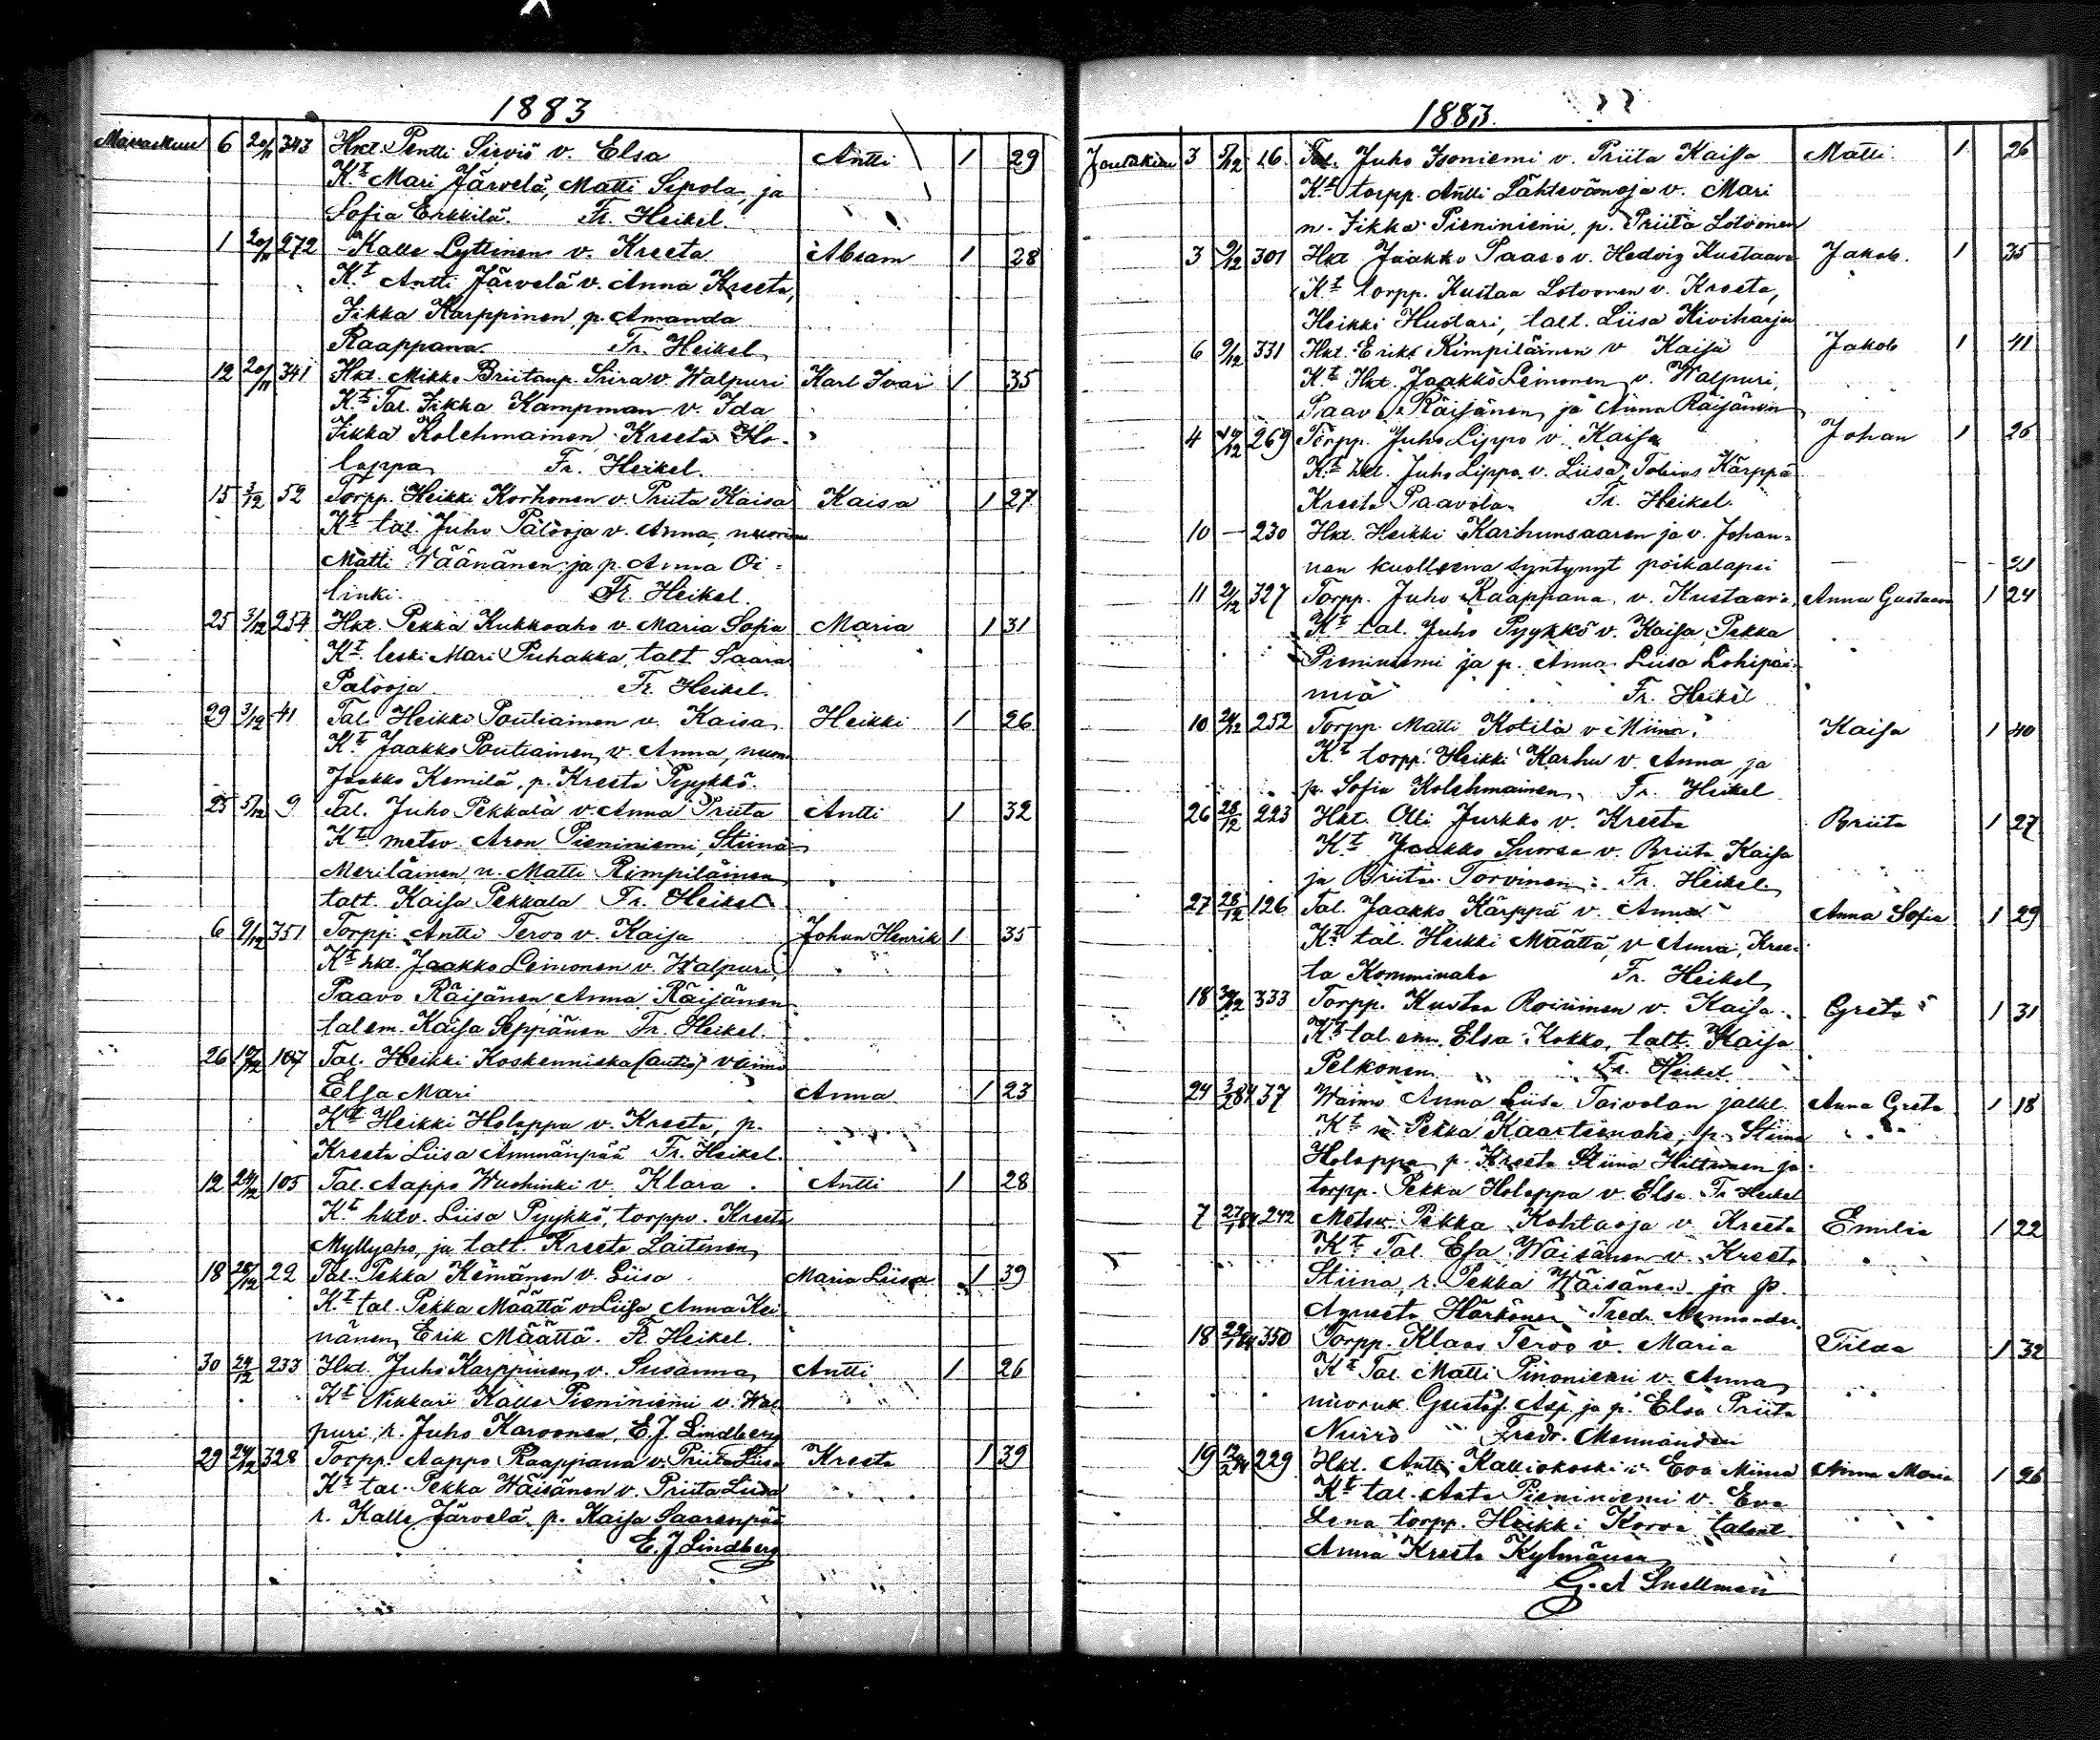 1883
Marraskuu 6 20/11 343 Hkt. Pentti Sirviö v. Elsa Antti 1 29
Kt. Mari Järvelä, Matti Sipola, ja
Sofia Erkkilä. Fr. Heikel.
1 20/11 272 Kalle Lyttinen v. Kreeta Abram 1 28
Kt. Antti Järvelä v. Anna Kreeta,
Fikka Karppinen, p. Amanda
Raappana. Fr. Heikel
12 20/11 341 Hkt. Mikko v. Walpuri Karl Ivar 1 35
Kt. Tal. Fikka Kampman v. Ida
Fikka Kolehmainen Kreeta Ho-
lappa Fr. Heikel.
15 3/12 52 Torpp. Heikki Korhonen v. Priita Kaisa Kaisa 1 27
Kt. tal. Juho Palooja v. Anna, nuorim
Matti Wäänänen ja p. Anna Oi-
linki. Fr. Heikel
25 3/12 254 Hkt. Pekka Kukkoaho v. Maria Sofia Maria 1 31
Kt. leski Mari Puhakka, talt Saara
Palooja Fr. Heikel.
29 3/12 41 Tal. Heikki Poutiainen v. Kaisa Heikki 1 26
Kt. Jaakko Poutiainen v. Anna, nuor.
Jaakko Kemilä, p. Kreeta Pyykkö.
25 5/12 9 Tal. Juho Pekkala v. Anna Priita Antti 1 32
Kt. metsv. Aron Pieniniemi, Stiina
Meriläinen, n. Matti Rimpiläinen
talt. Kaisa Pekkala Fr. Heikel
6 9/12 351 Torpp. Antti Tervo v. Kaisa Johan Henrik 1 35
Kt. hkt. Jaakko Leinonen v. Walpuri,
Paavo Räisänen, Anna Räisänen
tal em. Kaisa Seppänen Fr. Heikel.
26 12/12 107 Tal. Heikki Koskenniska (autio) vaimo
Elsa Mari Anna 1 23
Kt. Heikki Holappa v. Kreeta, p.
Kreeta Liisa Ammänpää Fr. Heikel.
12 24/12 105 Tal. Aappo Wuohinki v. Klara Antti 1 28
Kt. hktv. Liisa Pyykkö, torppv. Kreeta
Myllyaho, ja talt. Kreeta Laitinen
18 28/12 22 Tal. Pekka Kemänen v. Liisa Maria Liisa 1 39
Kt. tal. Pekka Määttä v. Liisa, Anna Kei-
nänen, Erik Määttä. Fr. Heikel.
30 24/12 233 Hkt. Juho Karppinen v. Susanna Antti 1 26
Kt. Nikkari Kalle Pieniniemi v. Wal-
puri, r. Juho Karvonen. E. J. Lindberg
29 24/12 328 Torpp. Aappo Raappana v. Priita Liisa Kreeta 1 39
Kt. tal. Pekka Wäisänen v. Priita Liisa
r. Kalle Järvelä, p. Kaisa Saarenpää
E. J. Lindberg
1883.
Joulukuu 3 5/12 16 Tal. Juho Isoniemi v. Priita Kaisa Matti 1 26
Kt. torpp. Antti Lähtevänoja v. Mari
n. Fikka Pieniniemi, p. Priita Lotvonen
3 9/12 301 Hkt Jaakko Paaso v. Hedvig Kustaava Jakob. 1 35
Kt. torpp. Kustaa Lotvonen v. Kreeta,
Heikki Hustari, talt. Liisa Kiviharju
6 9/12 331 Hkt. Erikk Kimpiläinen v Kaisa Jakob 1 41
Kt. Hkt. Jaakko Leinonen v. Walpuri,
Paavo Räisänen, ja Anna Räisänen
4 /12 269 Torpp. Juho Lippo v. Kaisa Johan 1 26
Kt. hkt. Juho Lippo v. Liisa, Tobias Kärppä
Kreeta Paavola Fr. Heikel.
10 — 230 Hkt. Heikki Karhunsaaren ja v. Johan-
nan kuolleena syntynyt poikalapsi — — 21
11 21/12 327 Torpp. Juho Raappana v. Kustaava Anna Gustaava 1 24
Kt tal. Juho Pyykkö v. Kaisa, Pekka
Pieniniemi ja p. Anna Liisa Lohipää-
niiä Fr. Heikel
10 24/12 252 Torpp. Matti Kotila v Miina Kaisa 1 40
Kt torpp. Heikki Karhu v. Anna ja
p. Sofia Kolehmainen Fr. Heikel
26 28/12 223 Hkt. Olli Jurkko v. Kreeta Briita 1 27
Kt. Jaakko Suorsa v. Briita Kaisa
ja Briita Torvinen Fr. Heikel
27 28/12 126 Tal. Jaakko Kärppä v. Anna Anna Sofia 1 29
Kt. tal. Heikki Määttä, v Anna, Kree-
ta Komminaho Fr. Heikel
18 30/12 333 Torpp. Kustaa Roininen v. Kaisa Greta 1 31
Kt. tal. em. Elsa Kokko, talt. Kaisa
Pelkonen Fr. Heikel
24 3/2 84 37 Waimo Anna Liisa Toivolan jälkl. Anna Greta 1 18
Kt. n. Pekka Kaartinaho, p. Stiina
Holappa, p. Kreeta Stiina Hiltunen ja
torpp. Pekka Holappa v. Elsa Fr. Heikel
7 27/1 84 242 Metsv. Pekka Kohtaoja v Kreeta Emilia 1 22
Kt Tal. Esa Wäisänen v. Kreeta
Stiina, r. Pekka Wäisänen ja p.
Agneeta Härkönen Fredr. Mennander.
18 29/1 84 350 Torpp. Klaas Tervo v. Maria Tilda 1 32
Kt. Tal. Matti Pinoniemi v. Anna
nuoruk. Gustaf Asp. ja p. Elsa Priita
Nuiro Fredr. Mennander
19 12/2 84 229 Hkt. Antti Kalliokoski v. Eva Miina Anna Maria 1 26
Kt. tal. Antti Pieniniemi v. Eva
Lena torpp. Heikki Korva talont.
Anna Kreeta Kylmänen
G. A Snellman